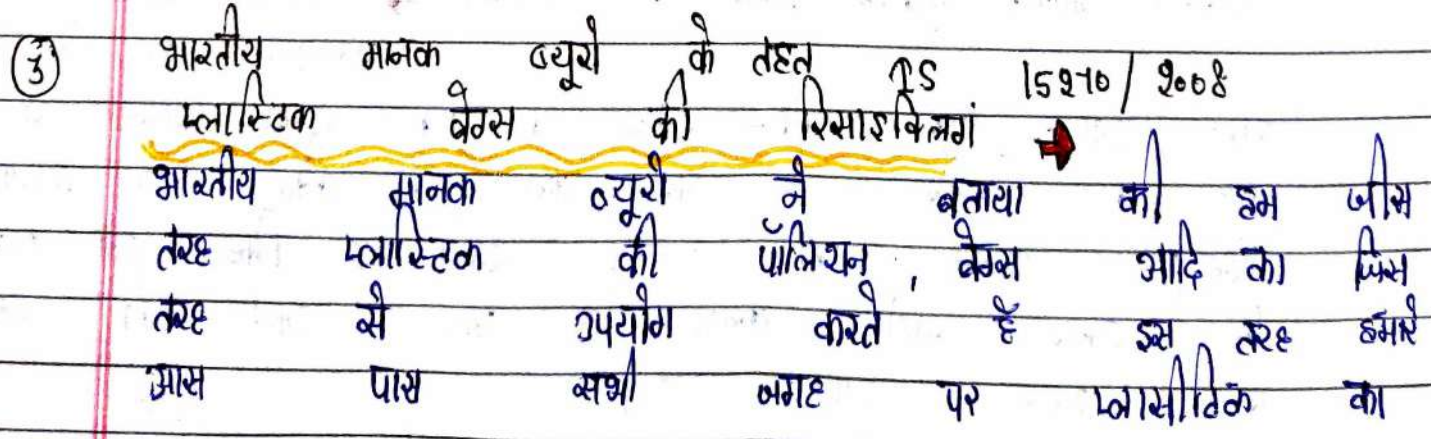 ③ भारतीय मानक ब्यूरो के तहत IS 15270/2008
प्लास्टिक बेग्स की रिसाइक्लिगं →
भारतीय मानक ब्यूरो ने बताया की हम जीस
तरह प्लास्टिक की पॉलिथन, बेग्स आदि का जिस
तरह से उपयोग करते है इस तरह हमारे
आस पास सभी जगह पर प्लासीटिक का